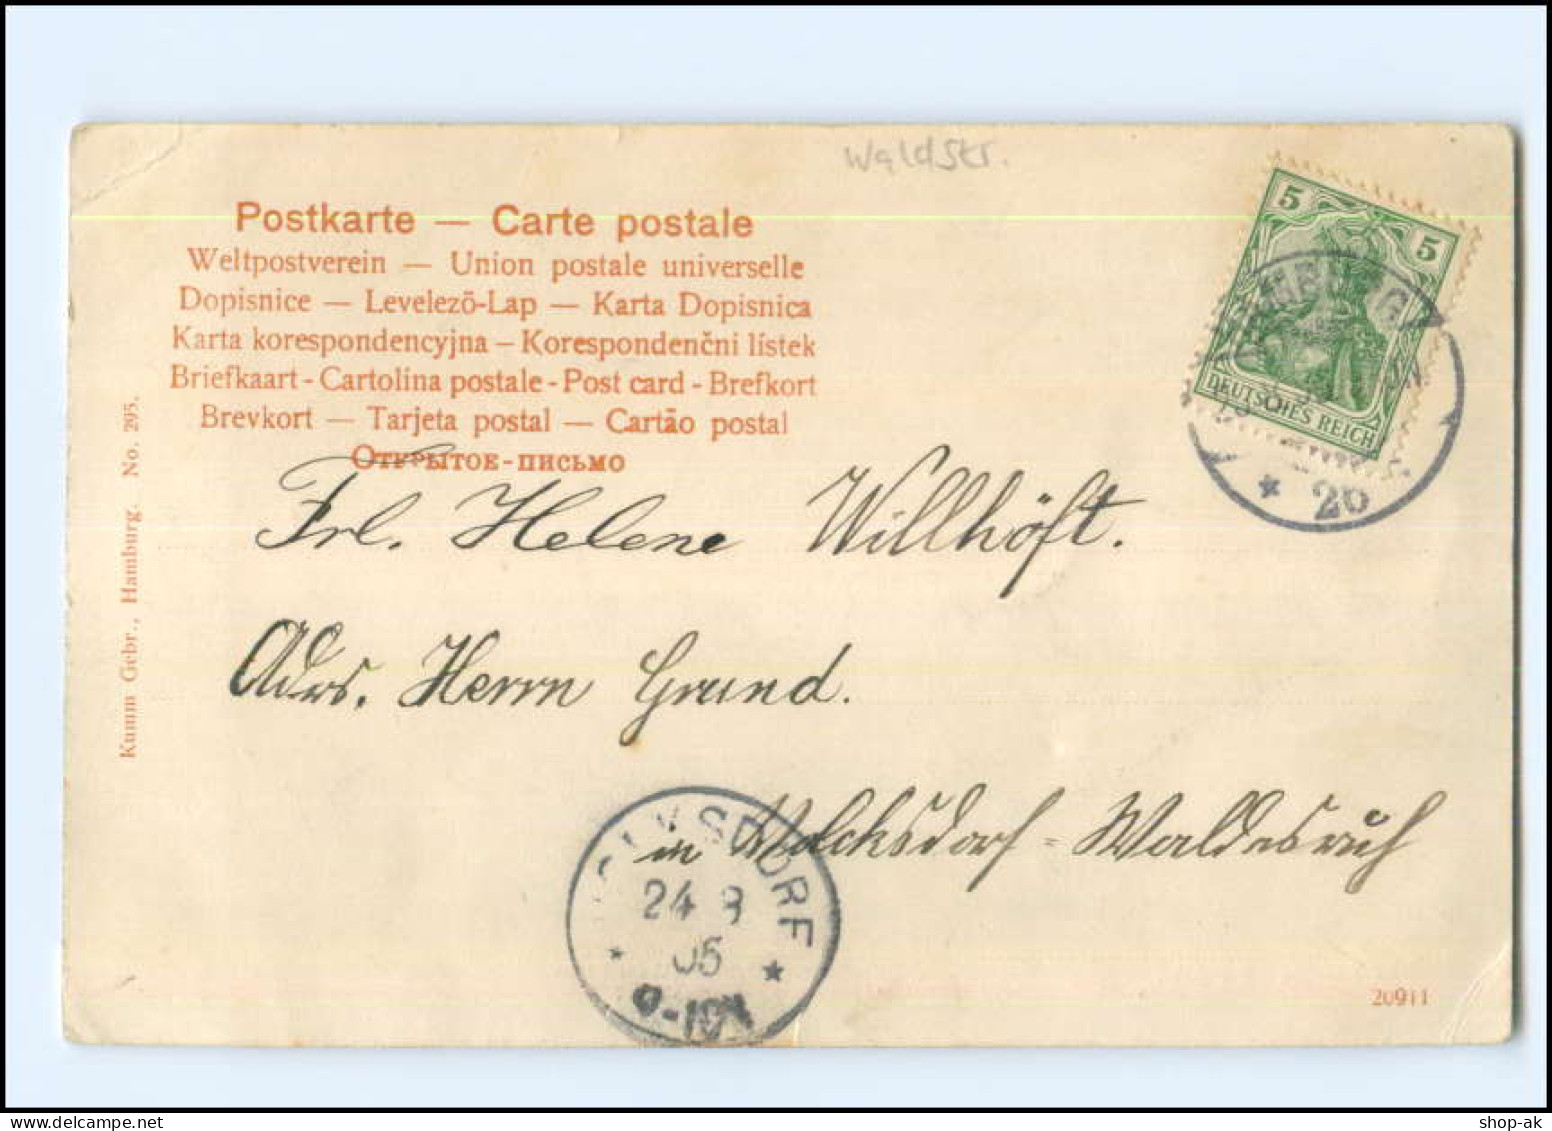 Waldstr.
Postkarte — Carte postale
Weltpostverein — Union postale universelle
Dopisnice — Levelezö-Lap — Karta Dopisnica
Karta korespondencyjna – Korespondenčni lístek
Briefkaart - Cartolina postale - Post card - Brefkort
Brevkort — Tarjeta postal — Cartão postal
Открытое-письмо
5 5
DEUTSCHES REICH
HAMBURG
* 20
Frl. Helene Willhöft.
Adrs. Herrn Grund.
in Volcksdorf - Waldesruh
VOLKSDORF
24 8
05
Kumm Gebr., Hamburg. No. 295.
20911
shop-ak